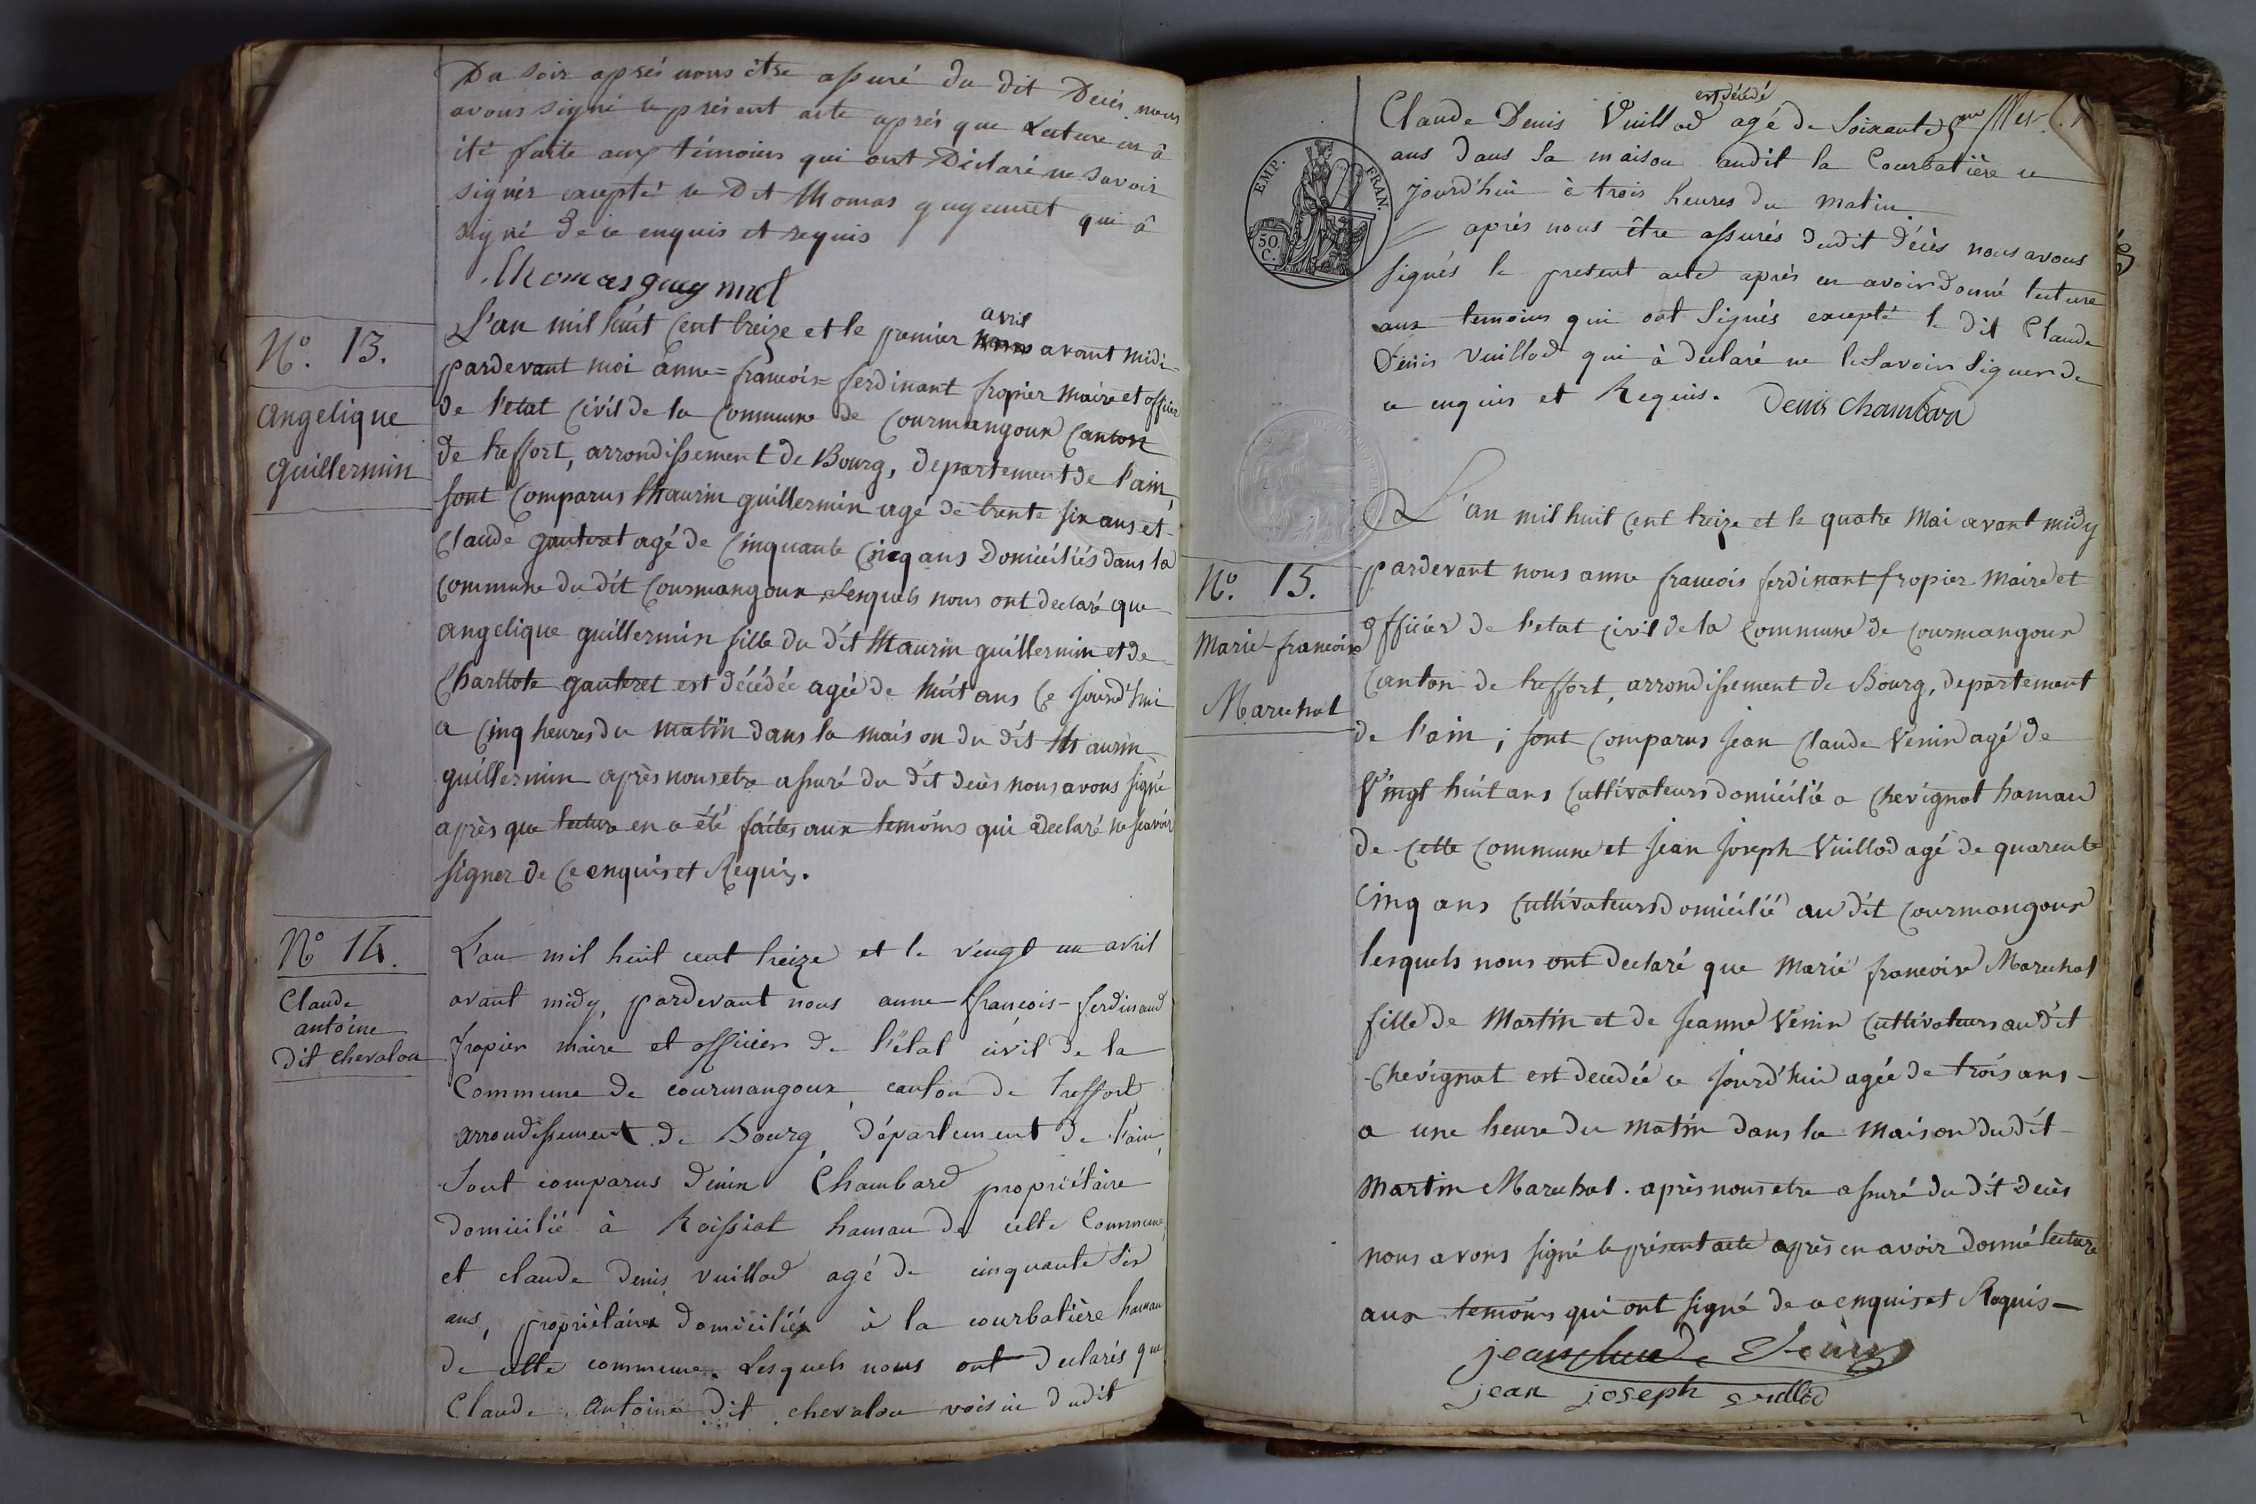 Du soir aprés nous être assuré du dit Décés nous
avons signé le présent acte aprés que Lecture en à
été faite aux témoins qui ont Déclaré ne savoir
signér excepté le Dit thomas guyennet qui à
signé de ce enquis et requis
thomas guynnet
N.º 13.
angelique
guillermin
L'an mil huit cent treize et le premier avril avant midi
pardevant moi anne=francois= ferdinant fropier maire et officier
de l'etat civil de la commune de Courmangoux canton
de treffort, arrondissement de Bourg, departement de l'ain,
sont comparus Maurin guillermin agé de trente six ans et
Claude gauteret agé de cinquante cinq ans Domiciliés dans la
commune du dit Courmangoux Lesquels nous ont declaré que
angelique guillermin fille du dit Maurin guillermin et de
Charllote gauteret est décédée agée de huit ans ce jourd'hui
a cinq heures du matin dans la maison du dit Maurin
guillermin après nous etre assuré du dit decès nous avons signé
après que lecture en a été faites aux temoins qui declaré ne scavoir
signer de ce enquis et Requis.
Nº 14.
Claude
antoine
Dit chevalon
L'an mil huit cent treize et le vingt un avril
avant midy, pardevant nous anne françois-ferdinand
fropier maire et officier de l'état civil de la
Commune de courmangoux, canton de treffort,
arrondissement de Bourg, département de l'ain,
Sont comparus Denin Chambard propriétaire
domicilié à Roissiat hamau de cette Commune
et claude Denis vuillod agé de cinquante six
ans, propriètaires domiciliés à la courbatière hamau
de cette commune. Lesquels nous ont declarés que
Claude Antoine dit chevalon voisin dudit
EMP. FRAN.
50 C.
est décédé
Claude Denis Vuillod agé de Soixante
ans dans sa maison audit la Courbatière ce
jourd'hui à trois heures du matin
aprés nous être assurés dudit décès nous avous
signés le present acte aprés en avoir donné lecture
aux temoins qui ont signés excepté le dit Claude
Denis vuillod qui à declaré ne le savoir signer de
ce enquis et Requis. Denis Chambard
N.º 15.
Marie francoise
Marechal
L'an mil huit cent treize et le quatre Mai avant midy
pardevant nous anne francois ferdinant fropier maire et
officier de l'etat civil de la commune de courmangoux
canton de treffort, arrondissement de Bourg, departement
de l'ain ; sont comparus Jean Claude Venin agé de
Vingt huit ans cultivateurs domicilié a chevignat hamau
de cette commune et Jean Joseph Vuillod agé de quarente
cinq ans cultivateurs domicilié au dit courmangoux
lesquels nous ont declaré que Marie francoise Marechal
fille de Martin et de Jeanne Venin cultivateurs au dit
chevignat est decedée ce jourd'hui agée de trois ans
a une heure du matin dans la maison du dit
Martin Marechal. après nous etre assuré du dit decès
nous avons signé le présent acte après en avoir donné lecture
aux temoins qui ont signé de ce enquis et Requis
jean claude Venin
jean joseph vuillod